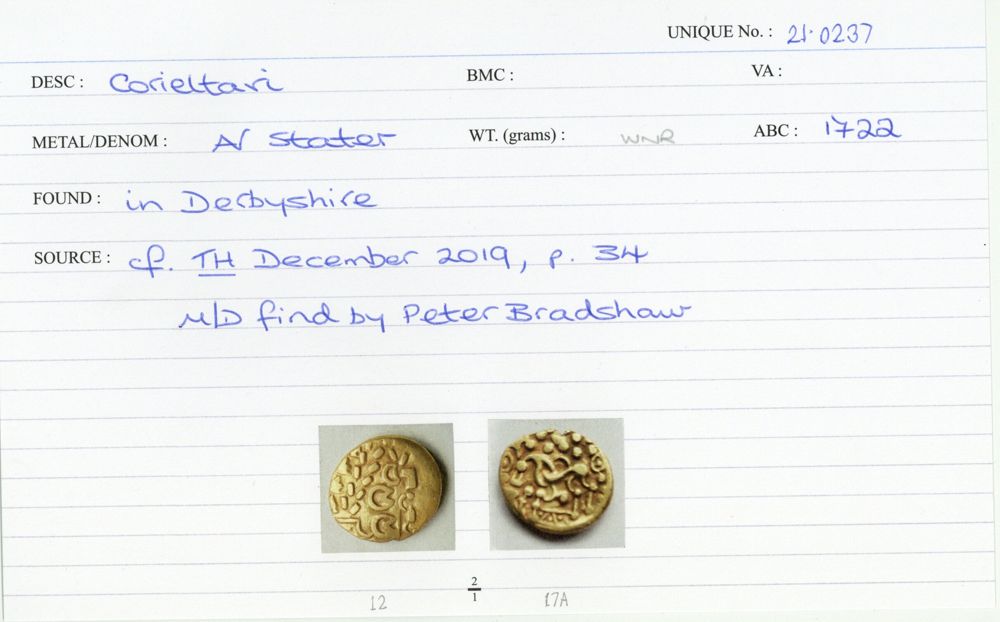 UNIQUE No. : 21·0237
DESC : Corieltavi BMC : VA :
METAL/DENOM : AV Stater WT. (grams) : WNR ABC : 1722
FOUND : in Derbyshire
SOURCE : cf. TH December 2019, p. 34
M/D find by Peter Bradshaw
2
1
12 17A